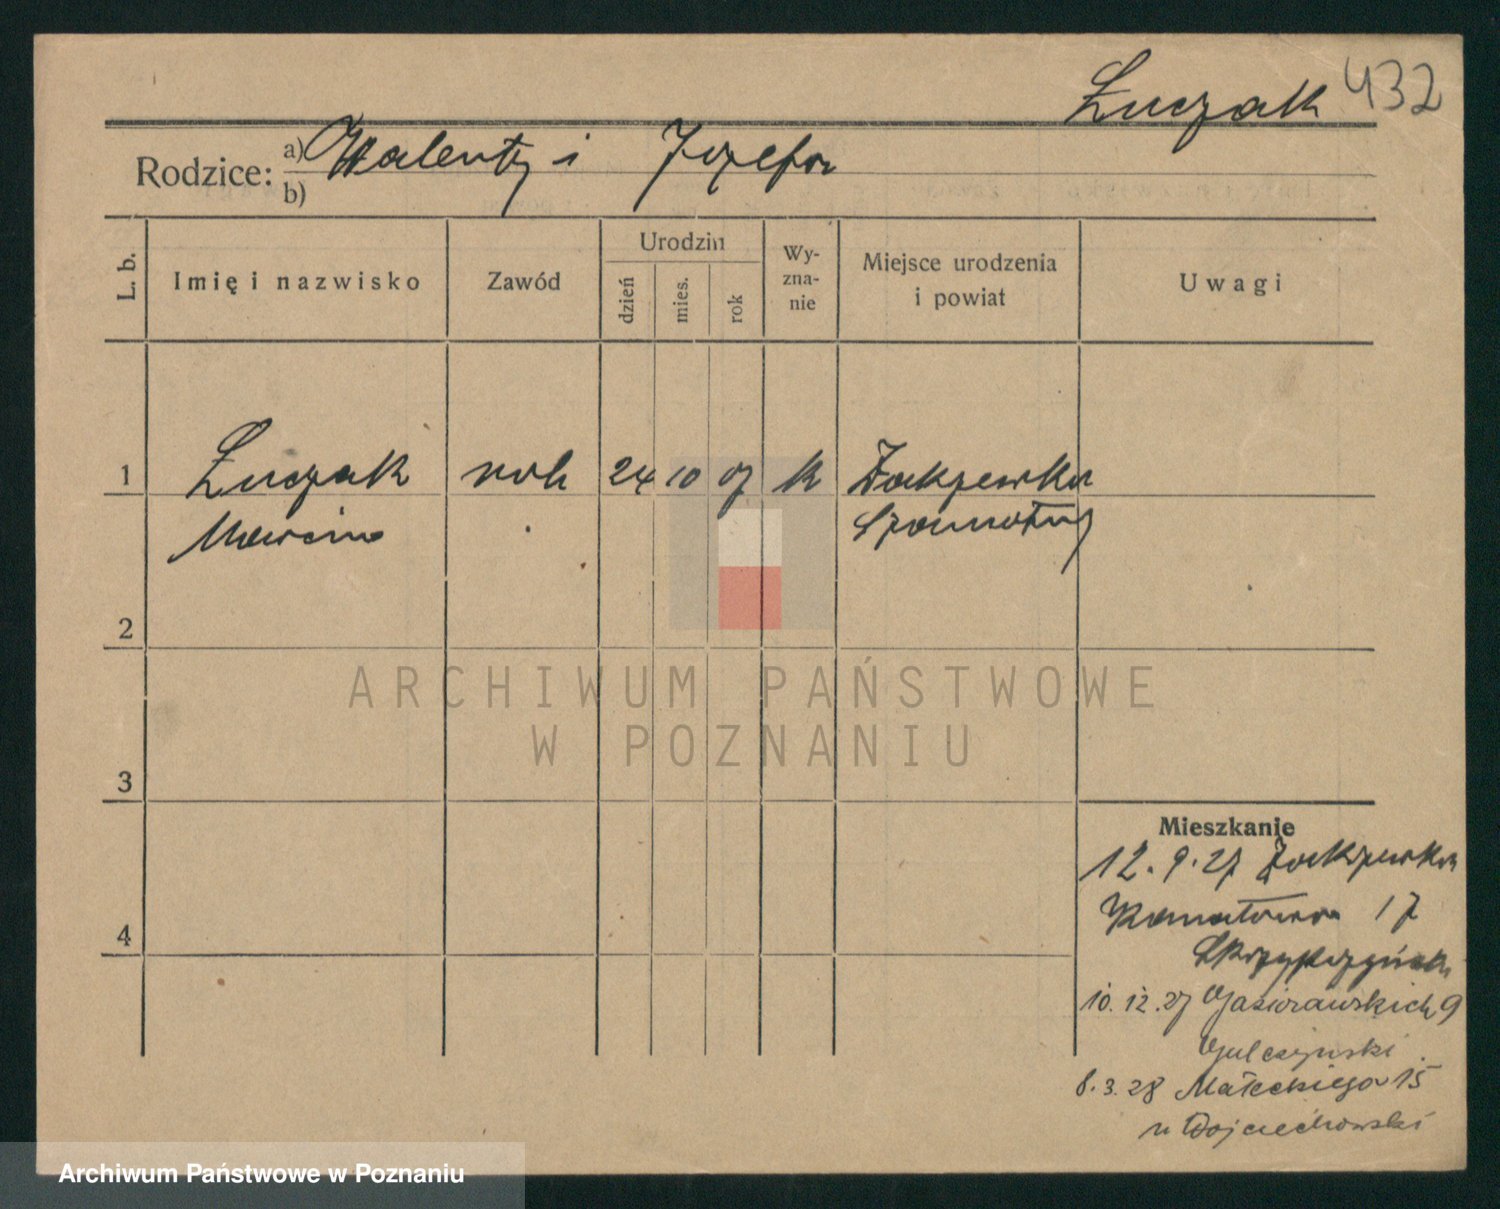 Łuczak 432
Rodzice: a) Walenty i Józefa
b)
L. b.
Imię i nazwisko
Zawód
Urodzin
dzień
mies.
rok
Wy-
zna-
nie
Miejsce urodzenia
i powiat
Uwagi
1 Łuczak rob 24 10 07 k Zakrzewko
Marcin Szamotuły
2
3
4
ARCHIWUM PAŃSTWOWE
W POZNANIU
Mieszkanie
12.9.27 Zakrzewko
17
Skrzypczyński
10.12.27 Gąsiorowskich 9
Gulczyński
8.3.28 Małeckiego 15
u Wojciechowski
Archiwum Państwowe w Poznaniu